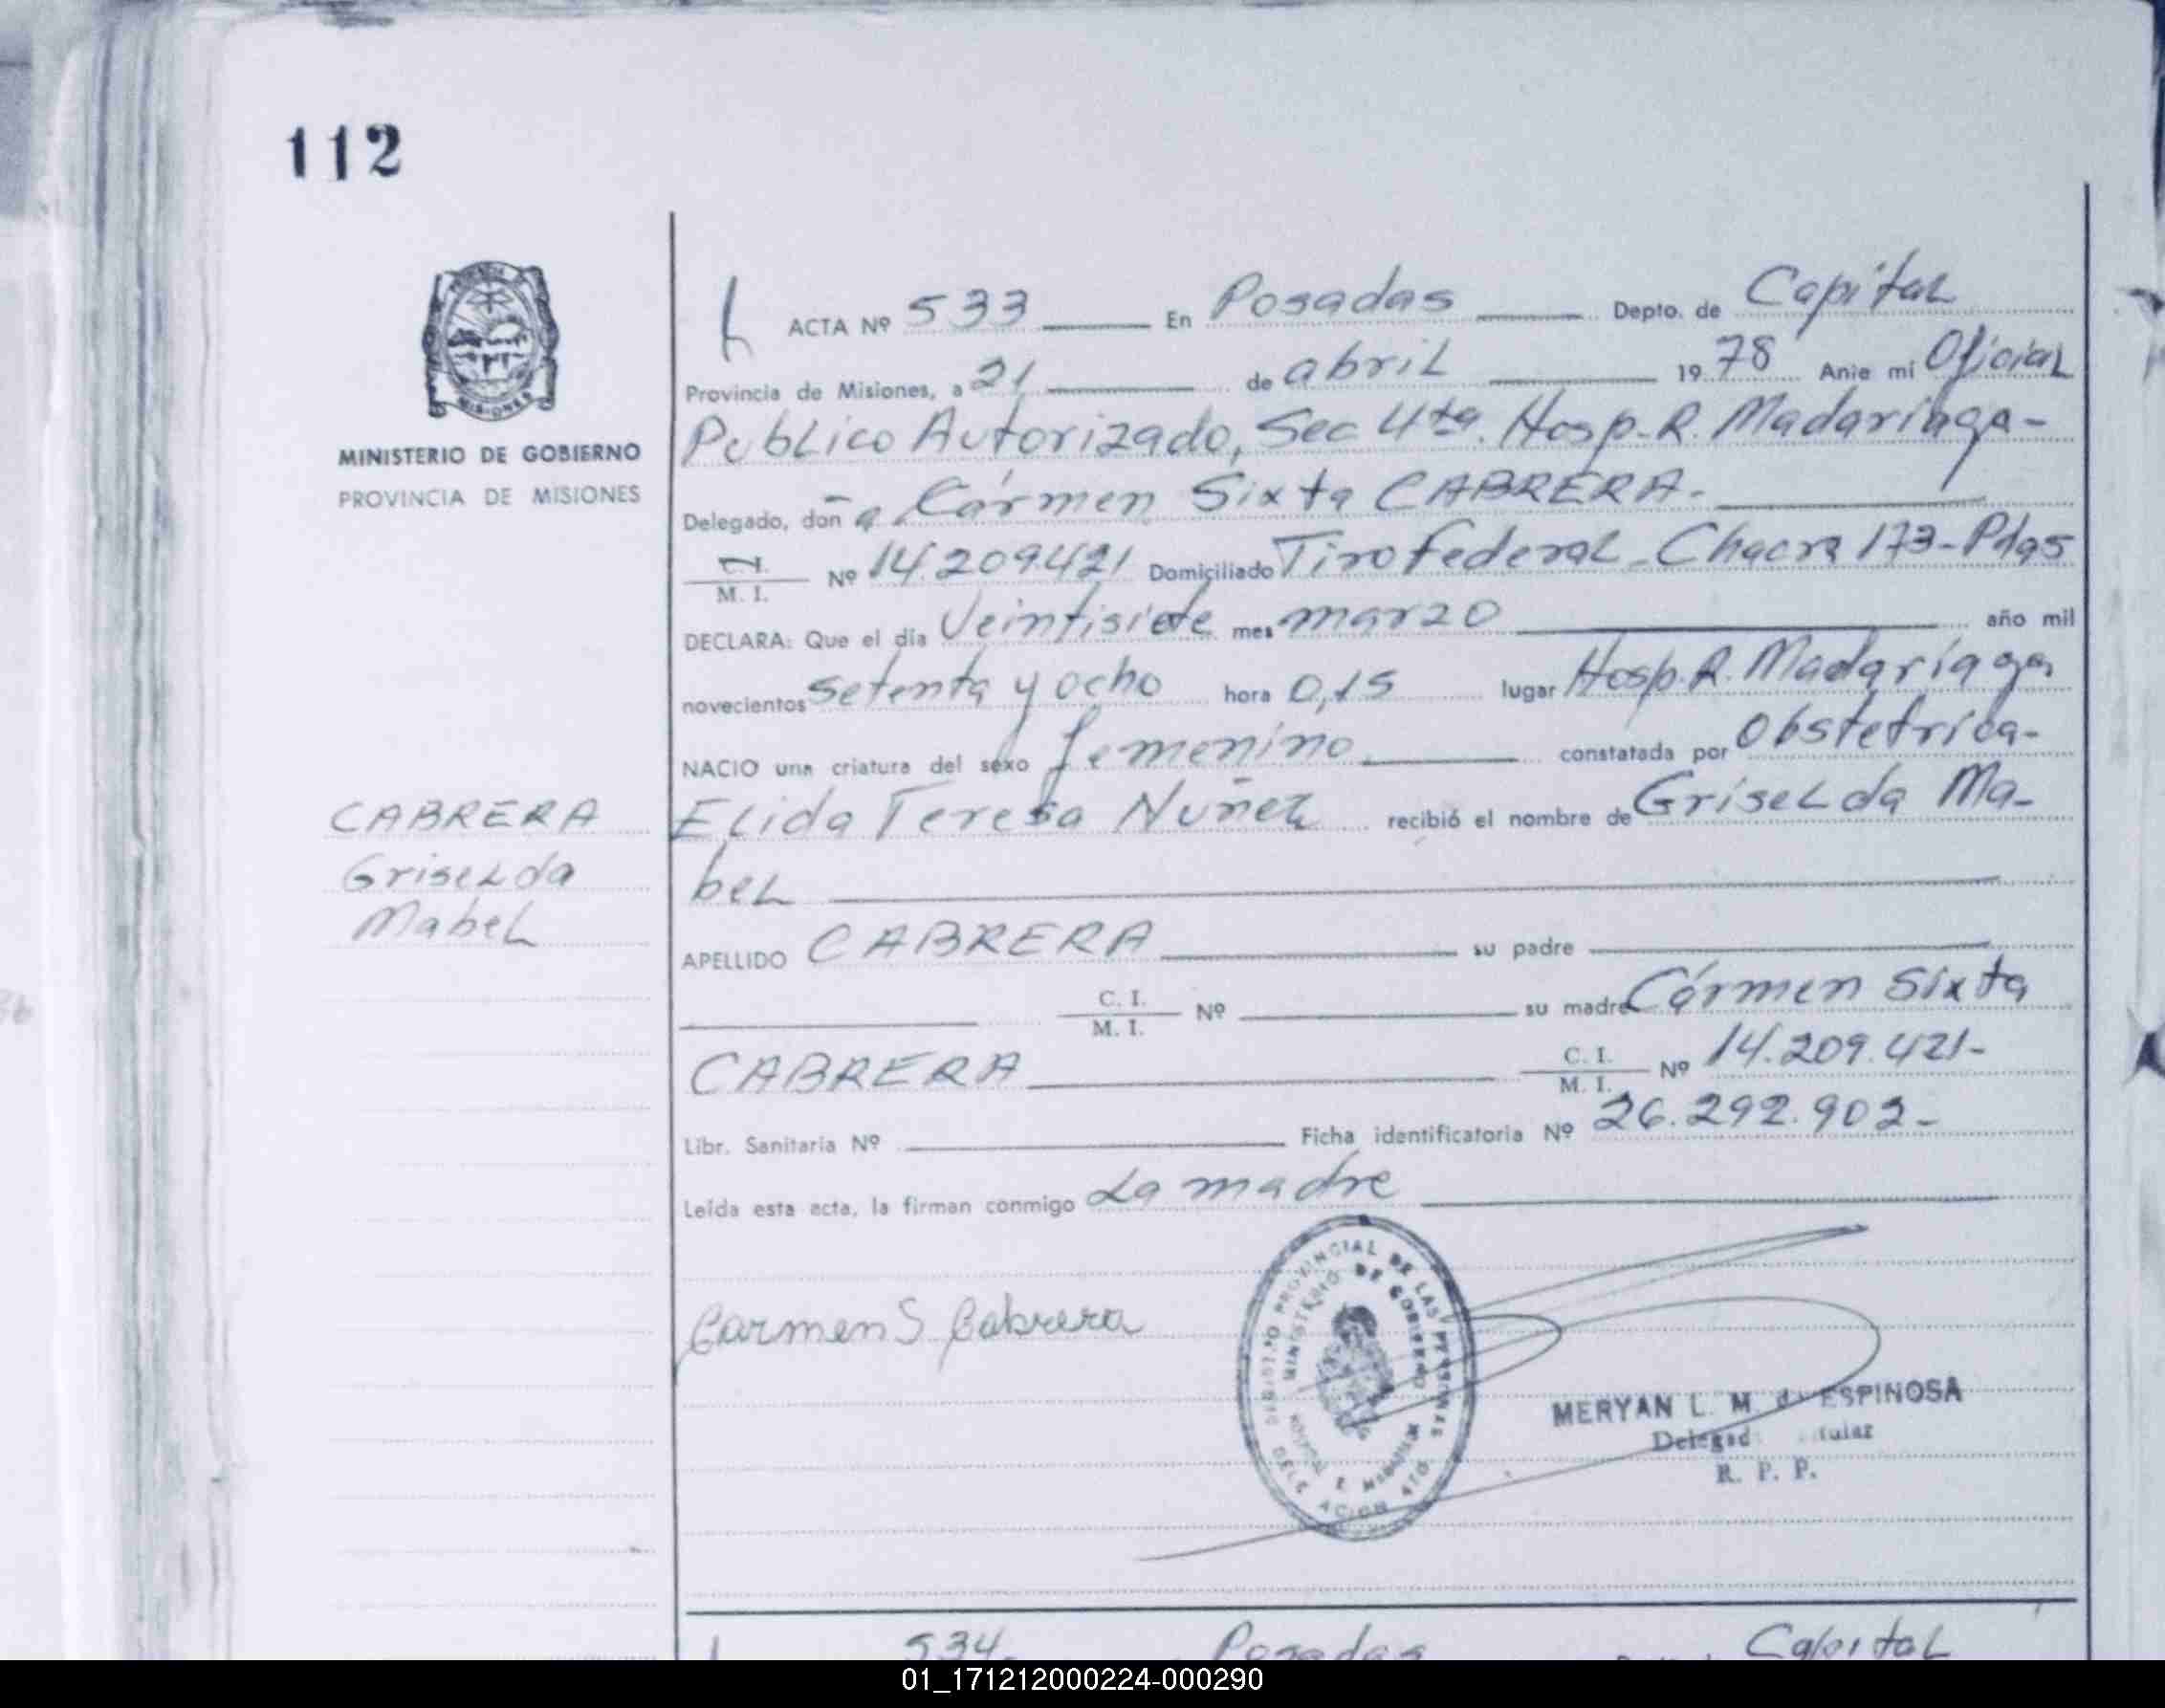 112
MINISTERIO DE GOBIERNO
PROVINCIA DE MISIONES
ACTA Nº 533 En Posadas Depto. de Capital
Provincia de Misiones, a 21 de abril 1978 Ante mi Oficial
Publico Autorizado, Sec 4ta. Hosp. R. Madariaga-
Delegado, doña Cármen Sixta CABRERA.
M. I. Nº 14.209.421 Domiciliado Tiro Federal - Chacra 173 - Pdas
DECLARA: Que el día Veintisiete mes marzo año mil
novecientos setenta y ocho hora 0,15 lugar Hosp. R. Madariaga
NACIO una criatura del sexo femenino constatada por Obstetrica-
Elida Teresa Nuñez recibió el nombre de Griselda Ma-
bel
CABRERA
Griselda
Mabel
APELLIDO CABRERA su padre
C. I.
M. I. Nº su madre Cármen Sixta
CABRERA C. I.
M. I. Nº 14.209.421-
Libr. Sanitaria Nº Ficha identificatoria Nº 26.292.902-
Leída esta acta, la firman conmigo La madre
Carmen S Cabrera
PROVINCIAL DE LAS PERSONAS
MINISTERIO DE GOBIERNO
MERYAN L. M. de ESPINOSA
R. P. P.
534- Posadas Capital
01_171212000224-000290